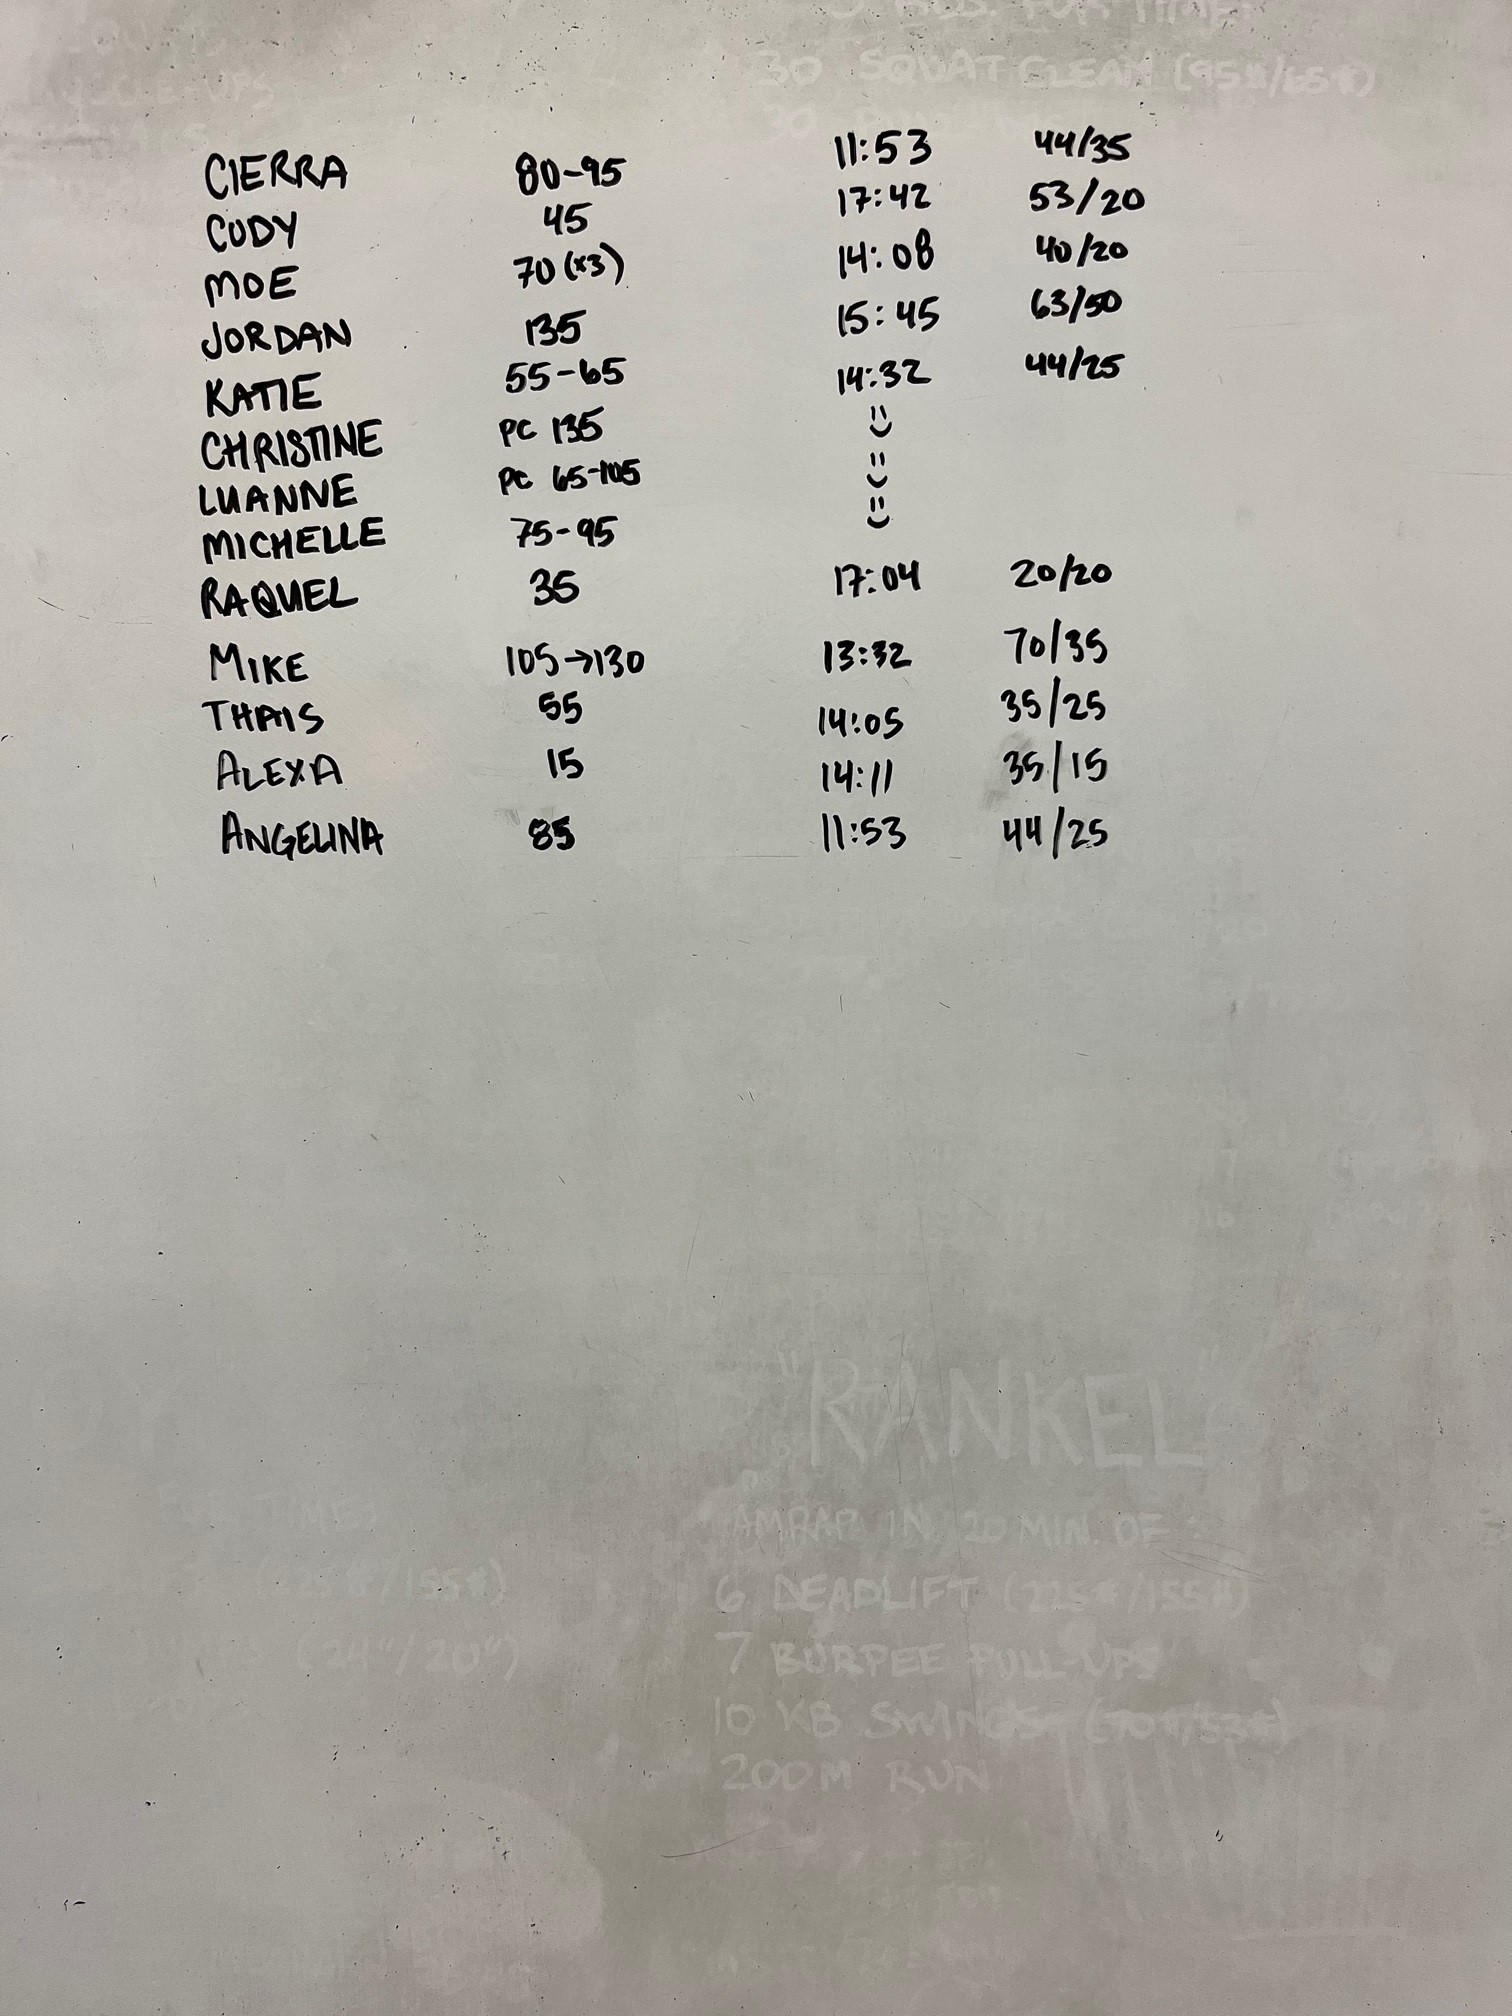 30 SQUAT CLEAN (95#/65#)
30
CIERRA 80-95 11:53 44/35
CODY 45 17:42 53/20
MOE 70 (x3) 14:08 40/20
JORDAN 135 15:45 63/50
KATIE 55-65 14:32 44/25
CHRISTINE PC 135 :)
LUANNE PC 65-105 :)
MICHELLE 75-95 :)
RAQUEL 35 17:04 20/20
MIKE 105→130 13:32 70/35
THAIS 55 14:05 35/25
ALEXA 15 14:11 35/15
ANGELINA 85 11:53 44/25
"RANKEL"
AMRAP IN 20 MIN. OF
6 DEADLIFT (225#/155#)
(24"/20")
7 BURPEE PULL-UPS
10 KB SWINGS (70#/53#)
200M RUN